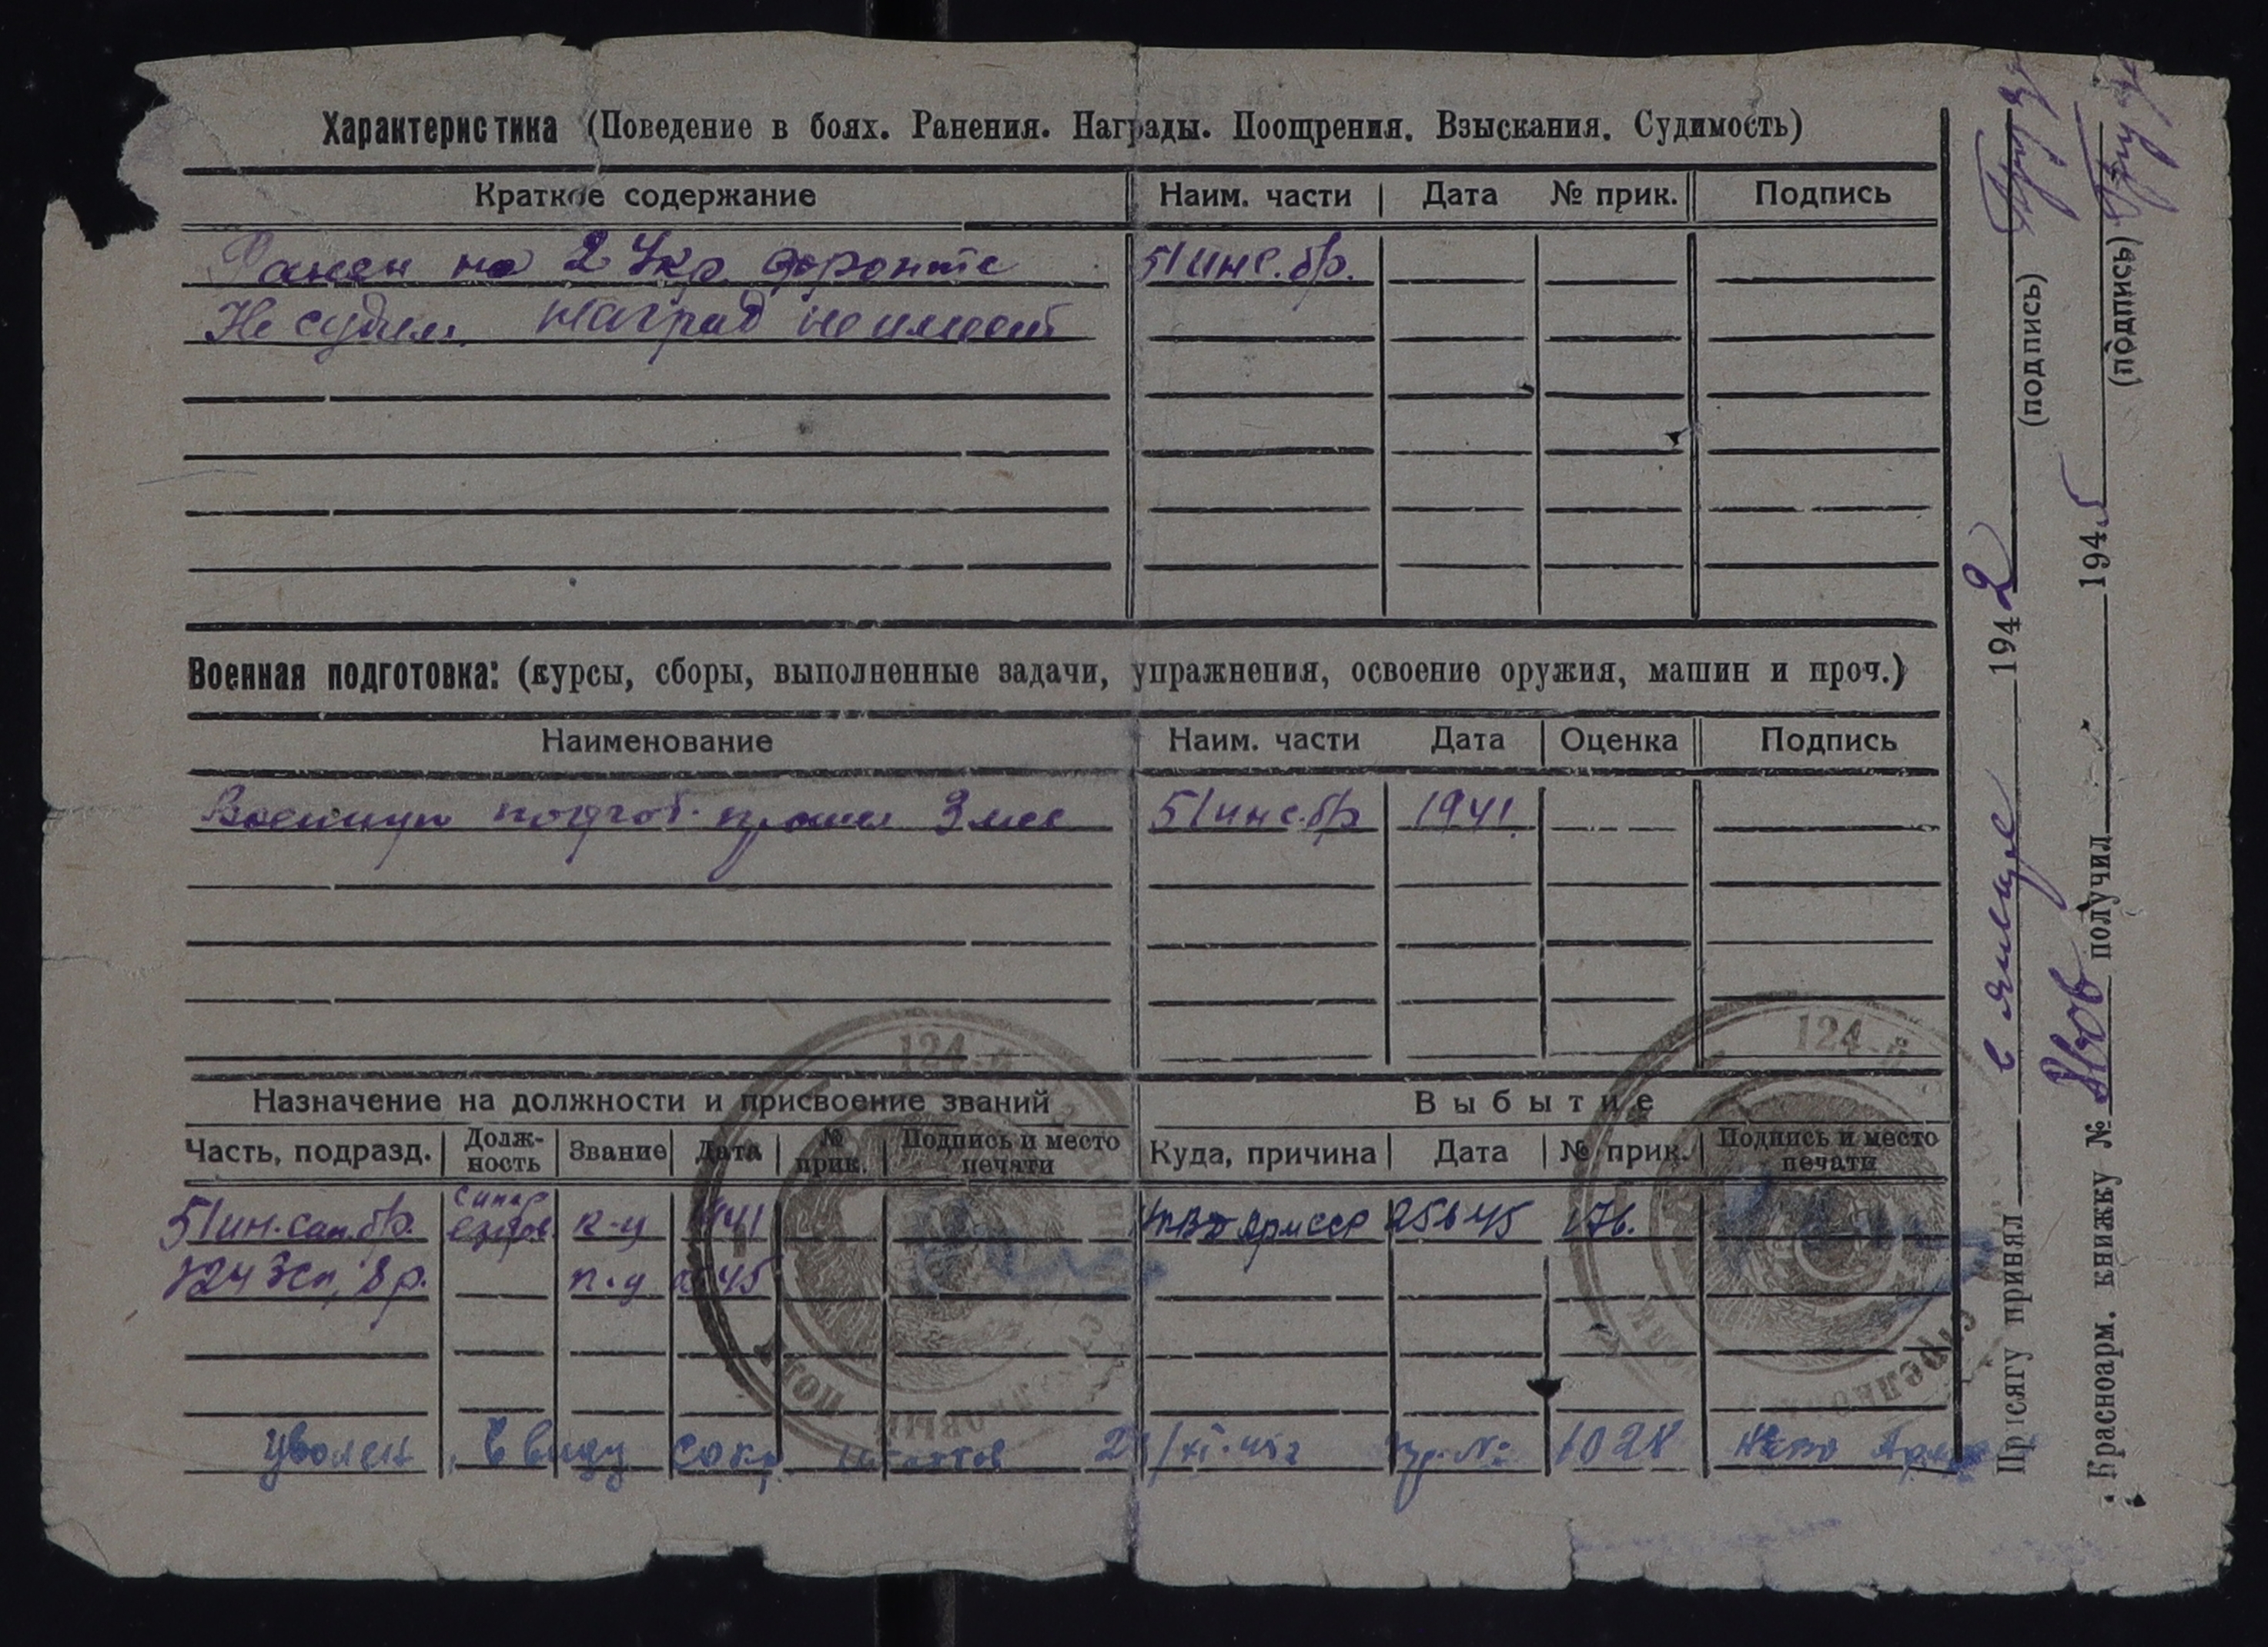 Характеристика (Поведение в боях. Ранения. Награды. Поощрения. Взыскания. Судимость)
Краткое содержание Наим. части Дата № прик. Подпись
Ранен на 2 Укр. фронте 51 инс. бр.
Не судим. Наград не имеет
Военная подготовка: (курсы, сборы, выполненные задачи, упражнения, освоение оружия, машин и проч.)
Наименование Наим. части Дата Оценка Подпись
Военную подгот. прошел 3 мес 51 инс. бр 1941
Назначение на должности и присвоение званий Выбытие
Часть, подразд. Должность Звание Дата № прик. Подпись и место печати Куда, причина Дата № прик. Подпись и место печати
51 ин. сап. бр. к-ц 1941 Арм ССР 25 6 45 176.
124 Зсп, 8 р. 45
Уволен, в виду сокр штатов пр. № 1028
124-й
стрелковый
полк
Присягу принял в 1942 (подпись)
Красноарм. книжку № получил 1945 (подпись)